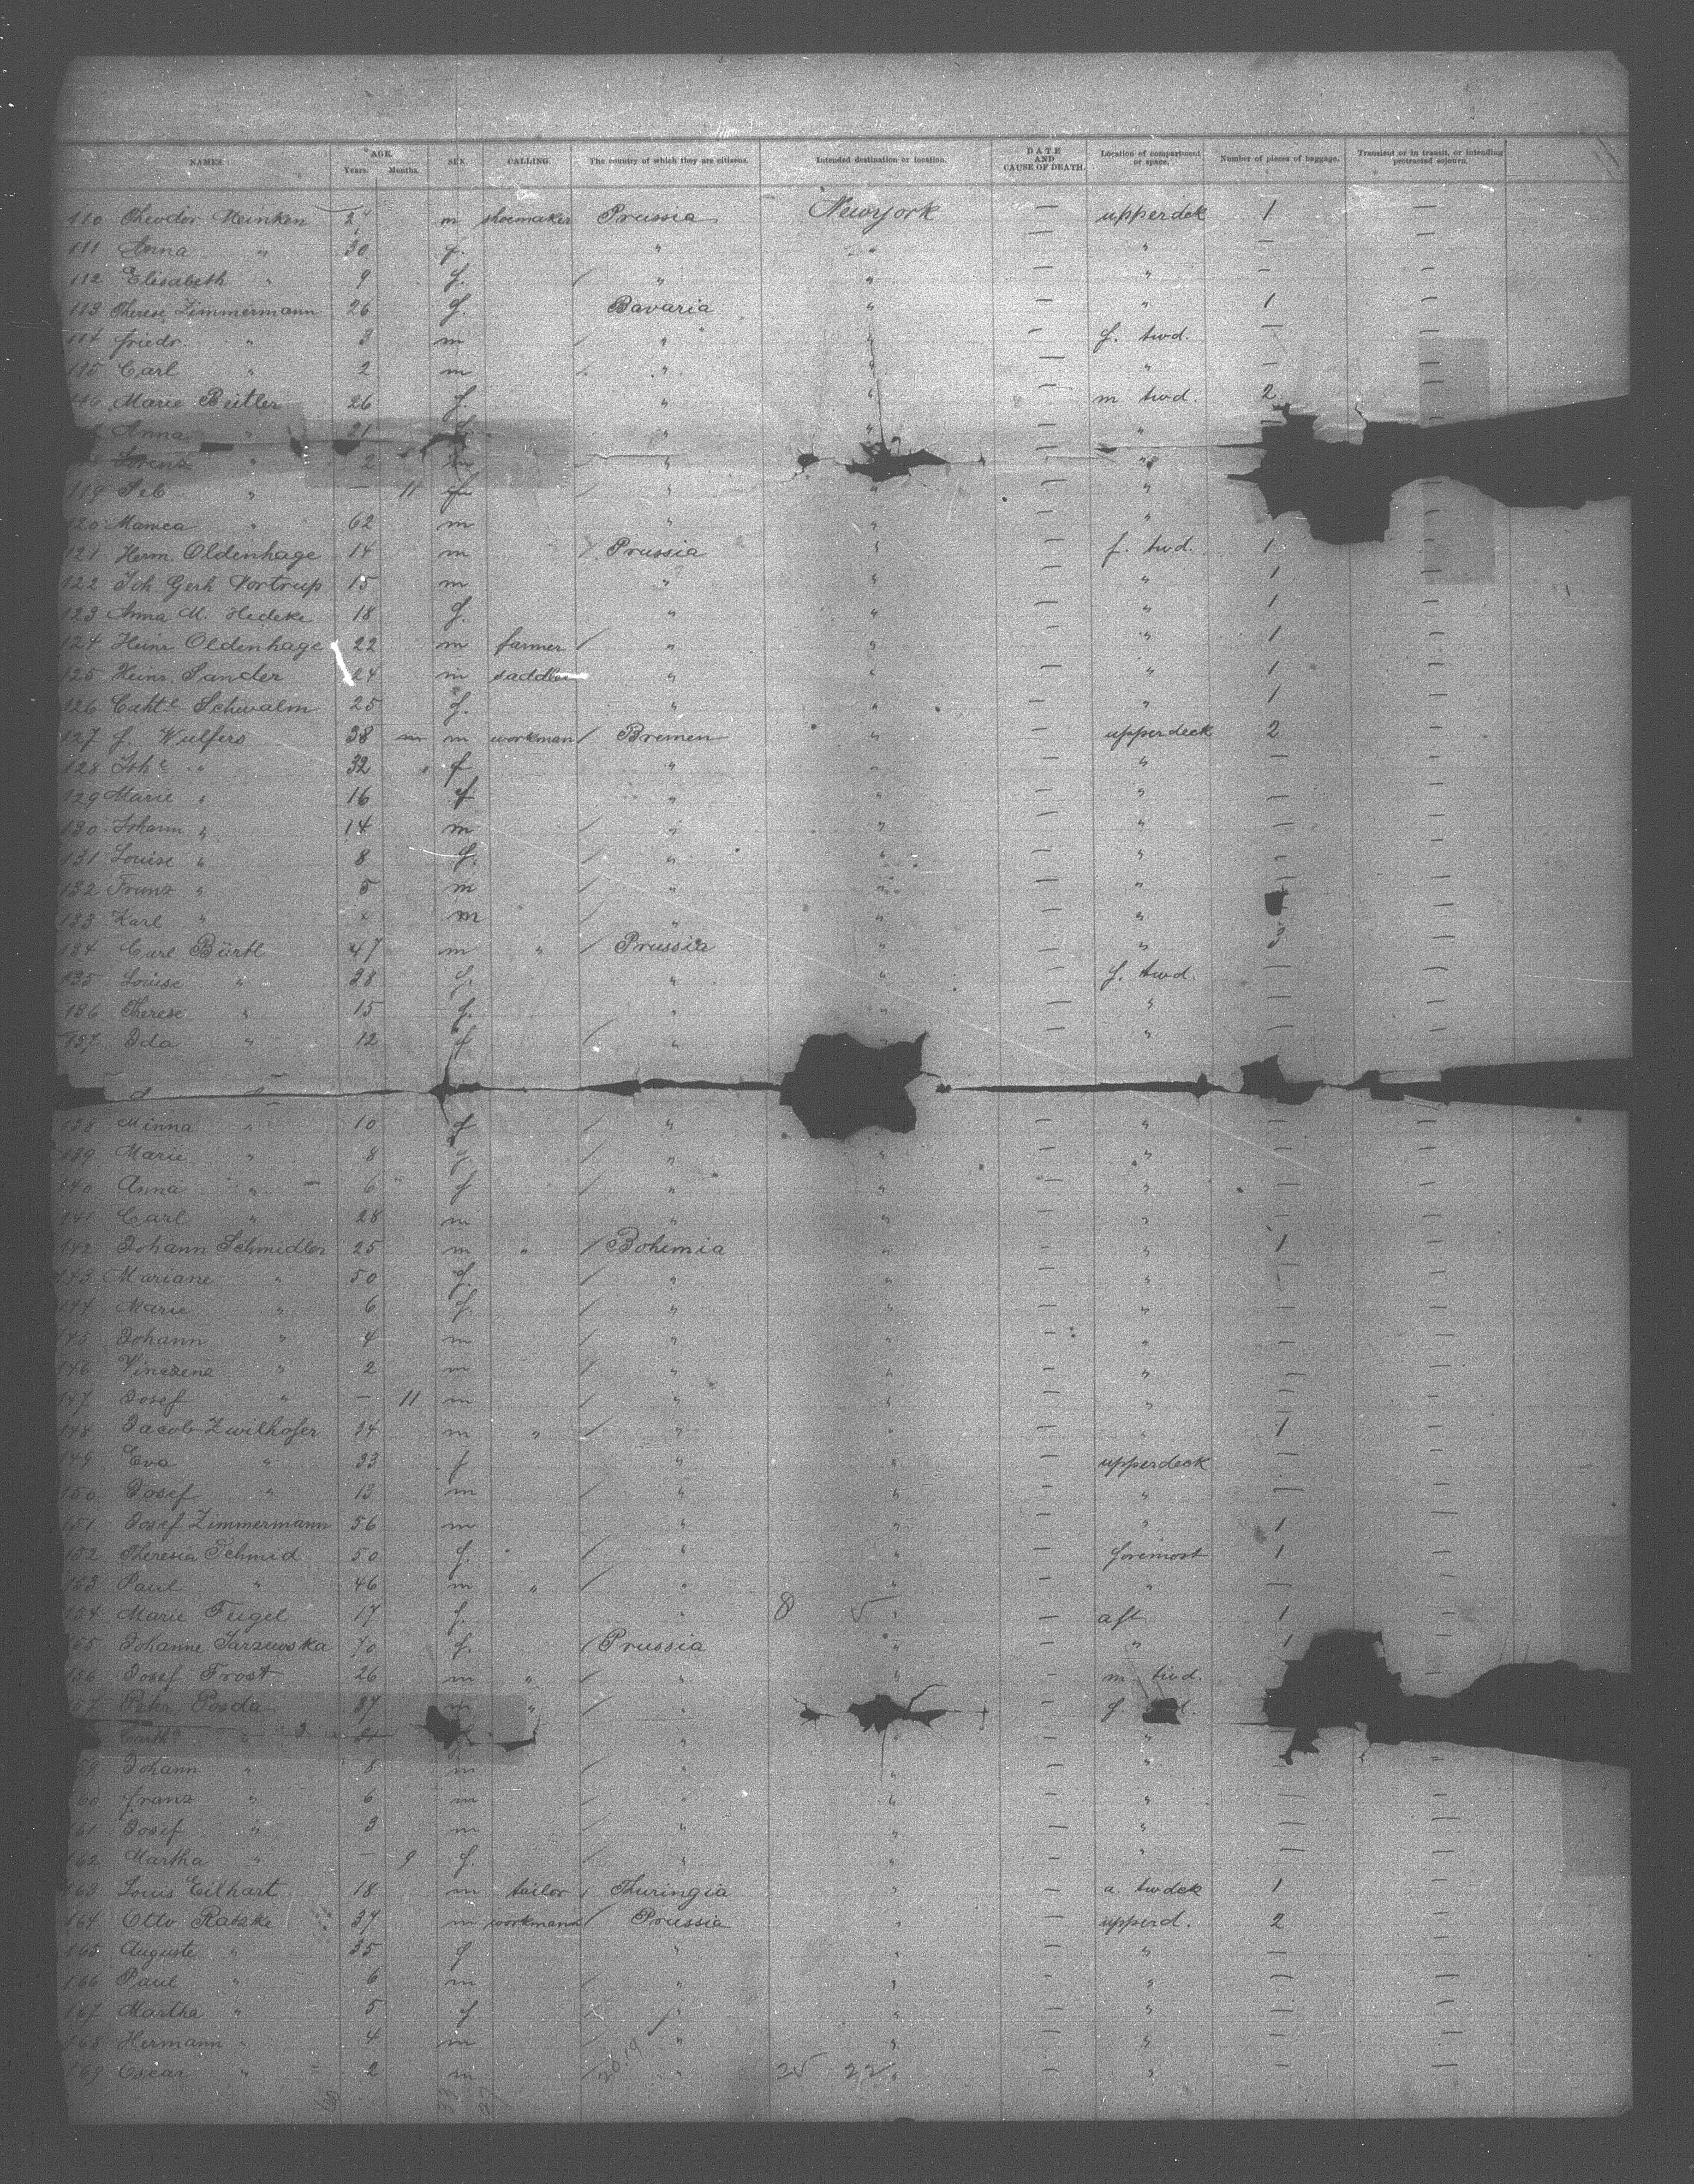 NAMES AGE. Years. Months. SEX. CALLING. The country of which they are citizens. Intended destination or location. DATE AND CAUSE OF DEATH. Location of compartment or space. Number of pieces of baggage. Transient or in transit, or intending protracted sojourn.
110 Theodor Meinken 24 m shoemaker Prussia Newyork — upperdek 1 —
111 Anna " 30 f. " " — " — —
112 Elisabeth " 9 f. / " " — " — —
113 Therese Zimmermann 26 f. Bavaria " — " 1 —
114 friedr. " 3 m / " " — f. twd. — —
115 Carl " 2 m / " " — " — —
116 Marie Beitler 26 f. " " — m twd. 2 —
Anna " 21 " " — " —
Lorenz " 2 " — "
119 Seb " — 11 / " " — "
120 Mamea " 62 m " " — "
121 Herm. Oldenhage 14 m / Prussia " — f. twd. 1 —
122 Joh. Gerh Vortrup 15 m " " — " 1 —
123 Anna M. Hedeke 18 f. " " — " 1 —
124 Heinr Oldenhage 22 m farmer / " " — " 1 —
125 Heinr. Sander 24 m saddler " " — " 1 —
126 Cathe Schwalm 25 f. " " — " 1 —
127 f. Wulfers 38 m m workman / Bremen " — upperdeck 2 —
128 Johe " 32 f " " — " — —
129 Marie " 16 f " " — " — —
130 Johann " 14 m / " " — " — —
131 Louise " 8 f. / " " — " — —
132 Franz " 5 m / " " — " —
133 Karl " m / " " — " —
134 Carl Bärtl 47 m " / Prussia " — " 3 —
135 Louise " 38 f. " " — f. twd. — —
136 Therese " 15 f. " " — " — —
137 Ida " 12 f / " " — " — —
138 Minna " 10 f / " — " — —
139 Marie " 8 f / " " — " — —
140 Anna " 6 f / " " — " — —
141 Carl " 28 m " " — " — —
142 Johann Schmidler 25 m " / Bohemia " — " 1 —
143 Mariane " 50 f. / " " — " —
144 Marie " 6 f. / " " — " — —
145 Johann " 4 m / " " — " — —
146 Vinczenz " 2 m / " " — " — —
147 Josef " — 11 m / " " — " — —
148 Jacob Zwilhofer 34 m " / " " — " 1 —
149 Eva " 33 f " " — upperdeck — —
150 Josef " 13 m / " " — " — —
151 Josef Zimmermann 56 m " " — " 1 —
152 Theresia Schmid 50 f. / " " — foremost 1 —
153 Paul " 46 m " / " " — " — —
154 Marie Feigel 17 f. " 8 " — aft 1 —
155 Johanne Jarzewska f. / Prussia " — " 1 —
156 Josef Frost 26 m " / " " — m twd.
157 Peter Posda 37 m " / " — f d.
Carth " f " " — "
159 Johann " 8 m / " " — " — —
160 franz " 6 m / " " — " — —
161 Josef " 3 m / " " — " — —
162 Martha " — 9 f. / " " — " — —
163 Louis Eilhart 18 m tailor / Thuringia " — a. twdek 1 —
164 Otto Ratzke 37 m workman / Prussia " — upperd. 2 —
165 Auguste " 35 f " " — " — —
166 Paul " 6 m / " " — " — —
167 Martha " 5 f. / " " — " — —
168 Hermann " 4 m / " " — " — —
169 Oscar " 2 m / " " — " — —